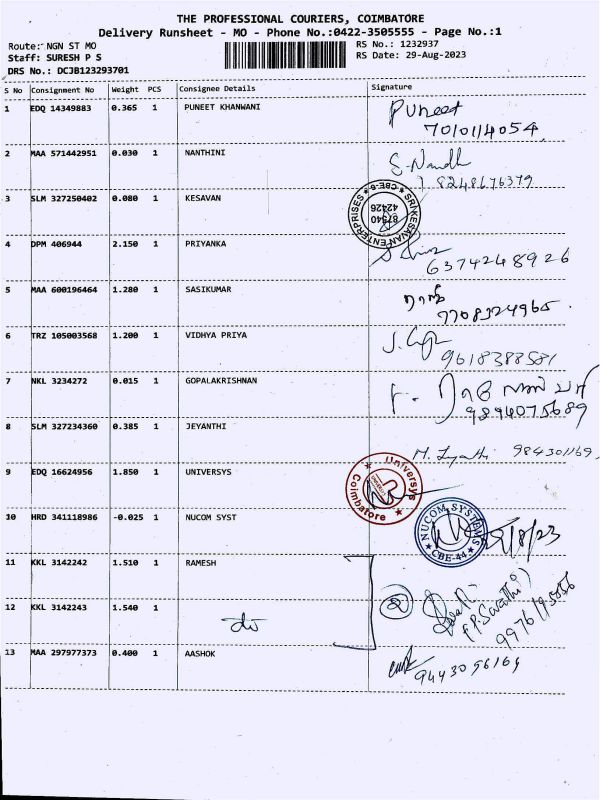 THE PROFESSIONAL COURIERS, COIMBATORE
Delivery Runsheet - MO - Phone No.:0422-3505555 - Page No.:1
Route: NGN ST MO
RS No.: 1232937
Staff: SURESH P S
RS Date: 29-Aug-2023
DRS No.: DCJB123293701
S No Consignment No Weight PCS Consignee Details Signature
1 EDQ 14349883 0.365 1 PUNEET KHANWANI Puneet
7010114054
2 MAA 571442951 0.030 1 NANTHINI S. Nandh
8248676379
3 SLM 327250402 0.080 1 KESAVAN
SRI KESAVAN ENTERPRISES ★ CBE-6 ★
87540
42426
4 DPM 406944 2.150 1 PRIYANKA
6374248926
5 MAA 600196464 1.280 1 SASIKUMAR
7708324965
6 TRZ 105003568 1.200 1 VIDHYA PRIYA
9618388581
7 NKL 3234272 0.015 1 GOPALAKRISHNAN
9894075689
8 SLM 327234360 0.385 1 JEYANTHI
M. Jeyanthi 984301169
9 EDQ 16624956 1.850 1 UNIVERSYS
★ Universys ★ Coimbatore
10 HRD 341118986 -0.025 1 NUCOM SYST
NUCOM SYSTEMS ★ CBE-44 ★
29/8/23
11 KKL 3142242 1.510 1 RAMESH
12 KKL 3142243 1.540 1 do
2
(P. Sarathi)
13 MAA 297977373 0.400 1 AASHOK
9443096169